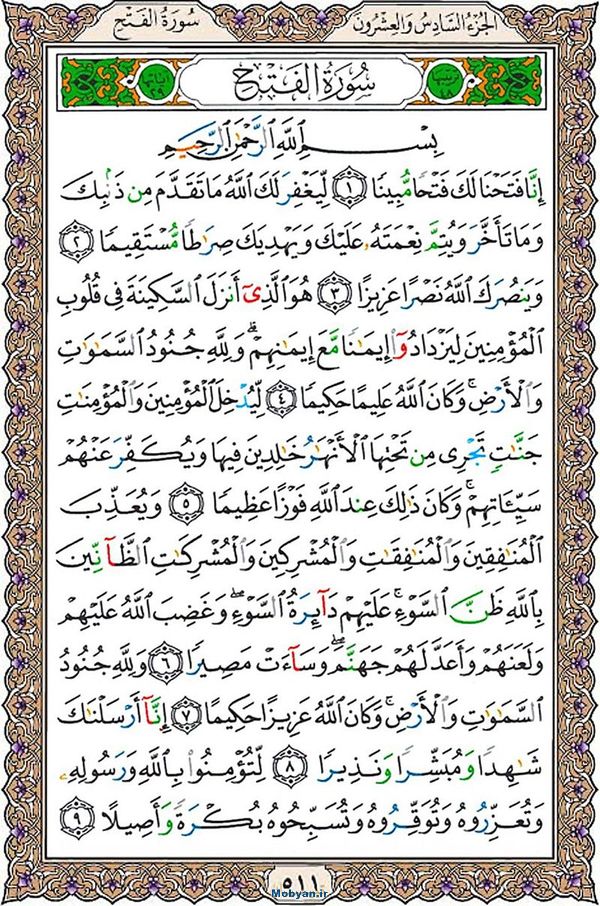 سُورَةُ الفَتْحِ
الجُزْءُ السَّادِسُ وَالعِشْرُونَ
سُورَةُ الفَتْحِ
بِسْمِ ٱللَّهِ ٱلرَّحْمَٰنِ ٱلرَّحِيمِ
إِنَّا فَتَحْنَا لَكَ فَتْحًا مُّبِينًا ١ لِّيَغْفِرَ لَكَ ٱللَّهُ مَا تَقَدَّمَ مِن ذَنۢبِكَ
وَمَا تَأَخَّرَ وَيُتِمَّ نِعْمَتَهُۥ عَلَيْكَ وَيَهْدِيَكَ صِرَٰطًا مُّسْتَقِيمًا ٢
وَيَنصُرَكَ ٱللَّهُ نَصْرًا عَزِيزًا ٣ هُوَ ٱلَّذِىٓ أَنزَلَ ٱلسَّكِينَةَ فِى قُلُوبِ
ٱلْمُؤْمِنِينَ لِيَزْدَادُوٓا۟ إِيمَٰنًا مَّعَ إِيمَٰنِهِمْ ۗ وَلِلَّهِ جُنُودُ ٱلسَّمَٰوَٰتِ
وَٱلْأَرْضِ ۚ وَكَانَ ٱللَّهُ عَلِيمًا حَكِيمًا ٤ لِّيُدْخِلَ ٱلْمُؤْمِنِينَ وَٱلْمُؤْمِنَٰتِ
جَنَّٰتٍ تَجْرِى مِن تَحْتِهَا ٱلْأَنْهَٰرُ خَٰلِدِينَ فِيهَا وَيُكَفِّرَ عَنْهُمْ
سَيِّـَٔاتِهِمْ ۚ وَكَانَ ذَٰلِكَ عِندَ ٱللَّهِ فَوْزًا عَظِيمًا ٥ وَيُعَذِّبَ
ٱلْمُنَٰفِقِينَ وَٱلْمُنَٰفِقَٰتِ وَٱلْمُشْرِكِينَ وَٱلْمُشْرِكَٰتِ ٱلظَّآنِّينَ
بِٱللَّهِ ظَنَّ ٱلسَّوْءِ ۚ عَلَيْهِمْ دَآئِرَةُ ٱلسَّوْءِ ۖ وَغَضِبَ ٱللَّهُ عَلَيْهِمْ
وَلَعَنَهُمْ وَأَعَدَّ لَهُمْ جَهَنَّمَ ۖ وَسَآءَتْ مَصِيرًا ٦ وَلِلَّهِ جُنُودُ
ٱلسَّمَٰوَٰتِ وَٱلْأَرْضِ ۚ وَكَانَ ٱللَّهُ عَزِيزًا حَكِيمًا ٧ إِنَّآ أَرْسَلْنَٰكَ
شَٰهِدًا وَمُبَشِّرًا وَنَذِيرًا ٨ لِّتُؤْمِنُوا۟ بِٱللَّهِ وَرَسُولِهِۦ
وَتُعَزِّرُوهُ وَتُوَقِّرُوهُ وَتُسَبِّحُوهُ بُكْرَةً وَأَصِيلًا ٩
٥١١
Mobyan.ir